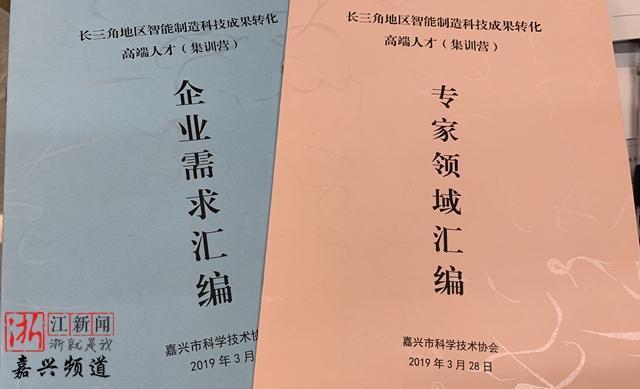 长三角地区智能制造科技成果转化
高端人才（集训营）
企业需求汇编
嘉兴市科学技术协
2019年3月
长三角地区智能制造科技成果转化
高端人才（集训营）
专家领域汇编
嘉兴市科学技术协会
2019年3月28日
浙江新闻
浙就是我
嘉兴频道